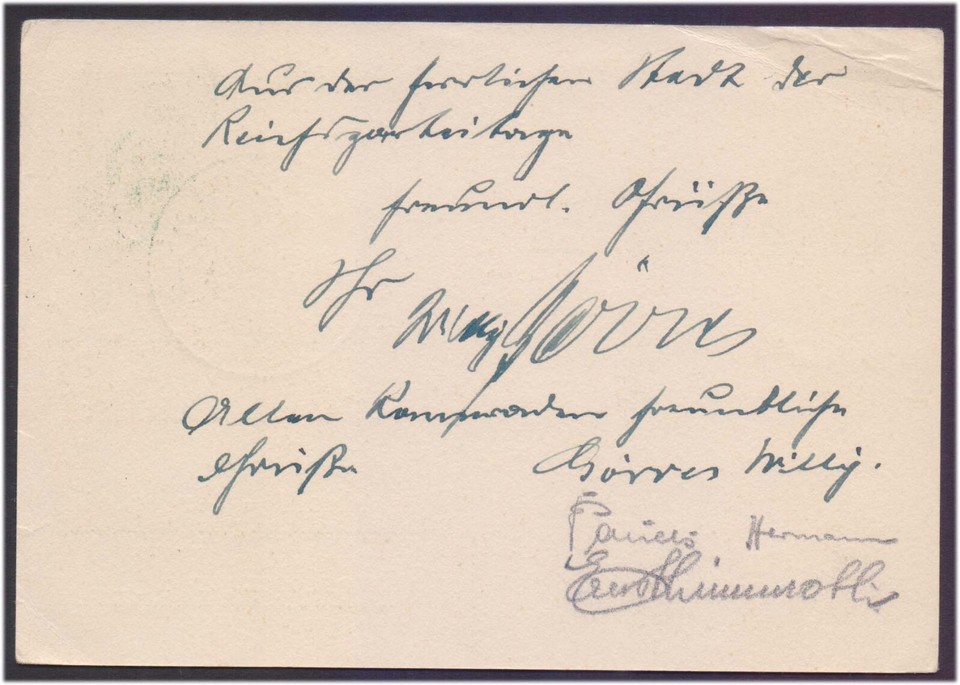 Aus der herrlichen Stadt der
Reichsparteitage
freundl. Grüße
Ihr
Willy Görres
Allen Kameraden freundliche
Grüße Görres Willy.
Hermann